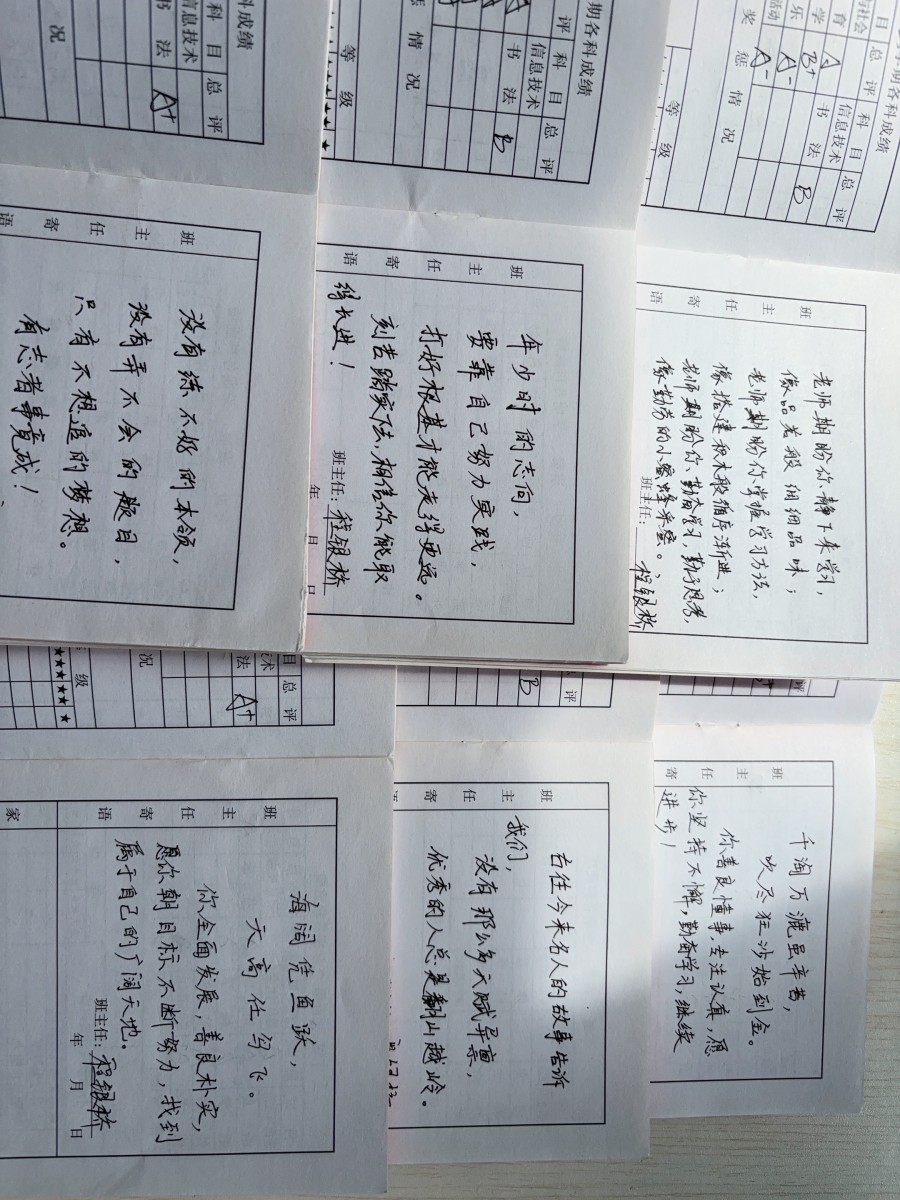 期各科成绩
目 总评 科目 总评
育 A 信息技术
学 B+ 书法 B
乐 A-
活动 A-
奖惩情况
等级
班主任寄语
老师期盼你静下来学习，
像品茗般细细品味；
老师期盼你掌握学习方法，
像搭建积木般循序渐进；
老师期盼你勤奋学习，勤于思考，
像勤劳的小蜜蜂采蜜。
班主任：程银桥
期各科成绩
评 科目 总评
信息技术
书法 B
惩情况
等级
★★★★★
班主任寄语
年少时的志向，
要靠自己努力实践，
打好根基才能走得更远。
刻苦踏实些，相信你能取
得长进！
班主任：程银桥
年 日 日
成绩
科目 总评
信息技术
书法 A+
况
班主任寄语
没有练不好的本领，
没有弄不会的题目，
只有不想追的梦想。
有志者事竟成！
评
班主任寄
千淘万漉虽辛苦，
吹尽狂沙始到金。
你善良懂事，专注认真，愿
你坚持不懈，勤奋学习，继续
进步！
评
B
班主任寄
古往今来名人的故事告诉
我们，
没有那么多天赋异禀，
优秀的人总是翻山越岭。
目 总评
术
法 A+
况
级
★★★★★
班主任寄语
海阔凭鱼跃，
天高任鸟飞。
你全面发展，善良朴实，
愿你朝目标不断努力，找到
属于自己的广阔天地。
班主任：程银桥
年 月 日
家